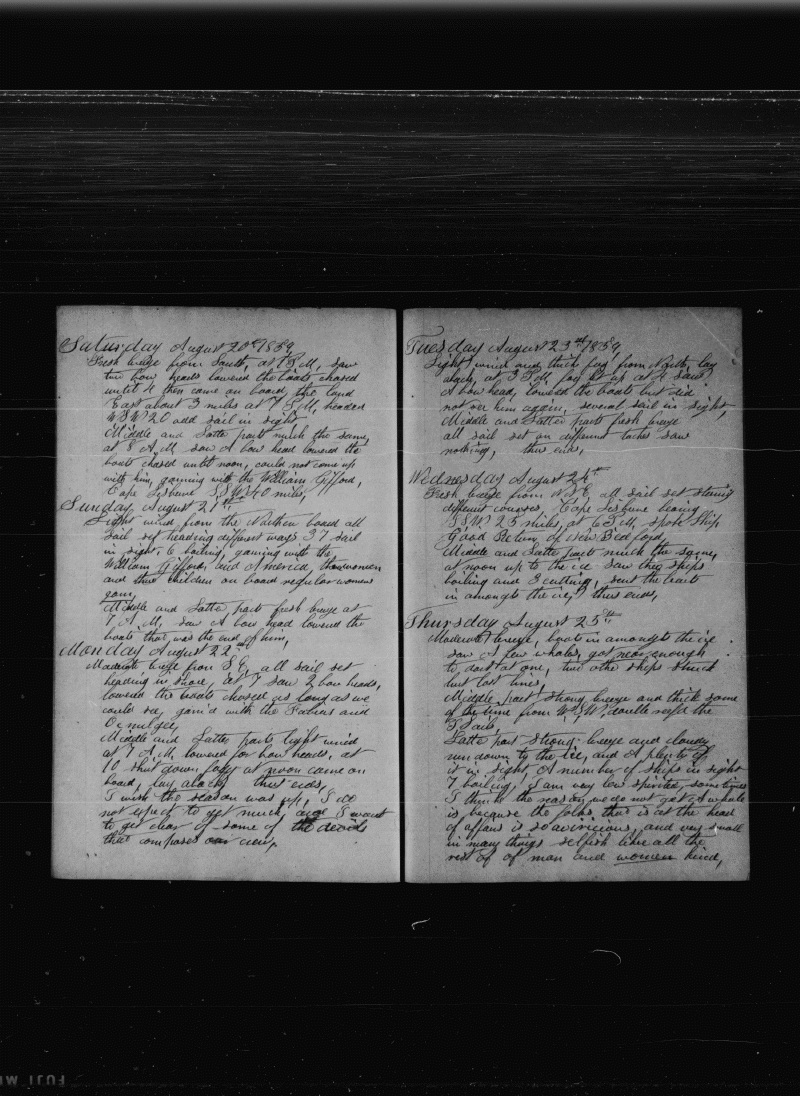 Saturday August 20th 1859
Fresh breeze from South, at 1 P M, saw
two bow heads lowered the boats chased
until 4 then came on board, the land
East about 3 miles at 7 P M, headed
W S W 20 odd sail in sight
Middle and Latter parts much the same,
at 8 A M saw A bow head lowered the
boats chased until noon, could not come up
with him, gaming with the William Gifford,
Cape Lisbune S S W 40 miles,
Sunday August 21st
Light wind from the Northen board all
sail set heading different ways 37 sail
in sight, 6 boiling, gaming with the
William Gifford, and America, three women
and three children on board regular womens
gam,
Middle and Latter parts fresh breeze at
7 A M, saw A bow head lowered the
boats that was the end of him,
Monday August 22nd
Moderate breeze from S E, all sail set
heading in shore, at 7 saw 2 bow heads,
lowered the boats chased as long as we
could see, gam'd with the Fabius and
Ocmulgee,
Middle and Latter parts light wind
at 7 A M, lowered for bow heads, at
10 shut down foggy at noon came on
board, lay aback, thus ends,
I wish the season was up, I do
not expect to get much, and I want
to get clear of some of the devils
that composes our crew,
Tuesday August 23rd 1859,
Light wind and thick fog from North, lay
aback, at 3 P M, fog lit up at 4 saw
A bow head, lowered the boats but did
not see him again, several sail in sight
Middle and Latter parts fresh breeze
all sail set on different tacks saw
nothing, thus ends,
Wednesday August 24th
Fresh breeze from N E, all sail set stering
different courses, Cape Lisbune bearing
S S W 25 miles, at 6 P M, spoke Ship
Good Return of New Bedford,
Middle and Latter parts much the same,
at noon up to the ice saw they ships
boiling and 3 cutting, sent the boats
in amongts the ice, thus ends,
Thursday August 25th
Moderate breeze, boats in amongts the ice
saw A few whales, got near enough
to dart at one, two other ships struck
but lost lines,
Middle part strong breeze and thick some
of the time from W S W, double reef'd the
T Sails,
Latter part strong breeze and cloudy
run down to the ice, and A plenty of
it in sight, A number of ships in sight
7 boiling, I am very low spirited, some times
I think the reason we do not get A whale
is because the folks that is at the head
of affairs is so avericious, and very small
in many things selfish like all the
rest of of man and women kind,
FUJI